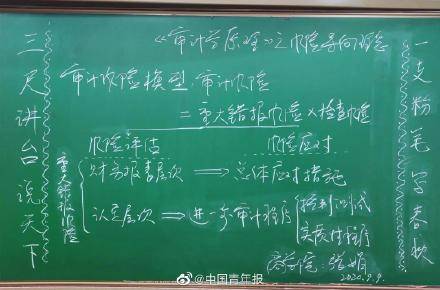 《审计学原理》之风险导向理念
三尺讲台说天下
一支粉笔写春秋
审计风险模型:审计风险
=重大错报风险×检查风险
风险评估 风险应对
重大错报风险
财务报表层次 ⇒ 总体应对措施
认定层次 ⇒ 进一步审计程序
控制测试
实质性程序
商学院:张娟
2020.9.9.
@中国青年报